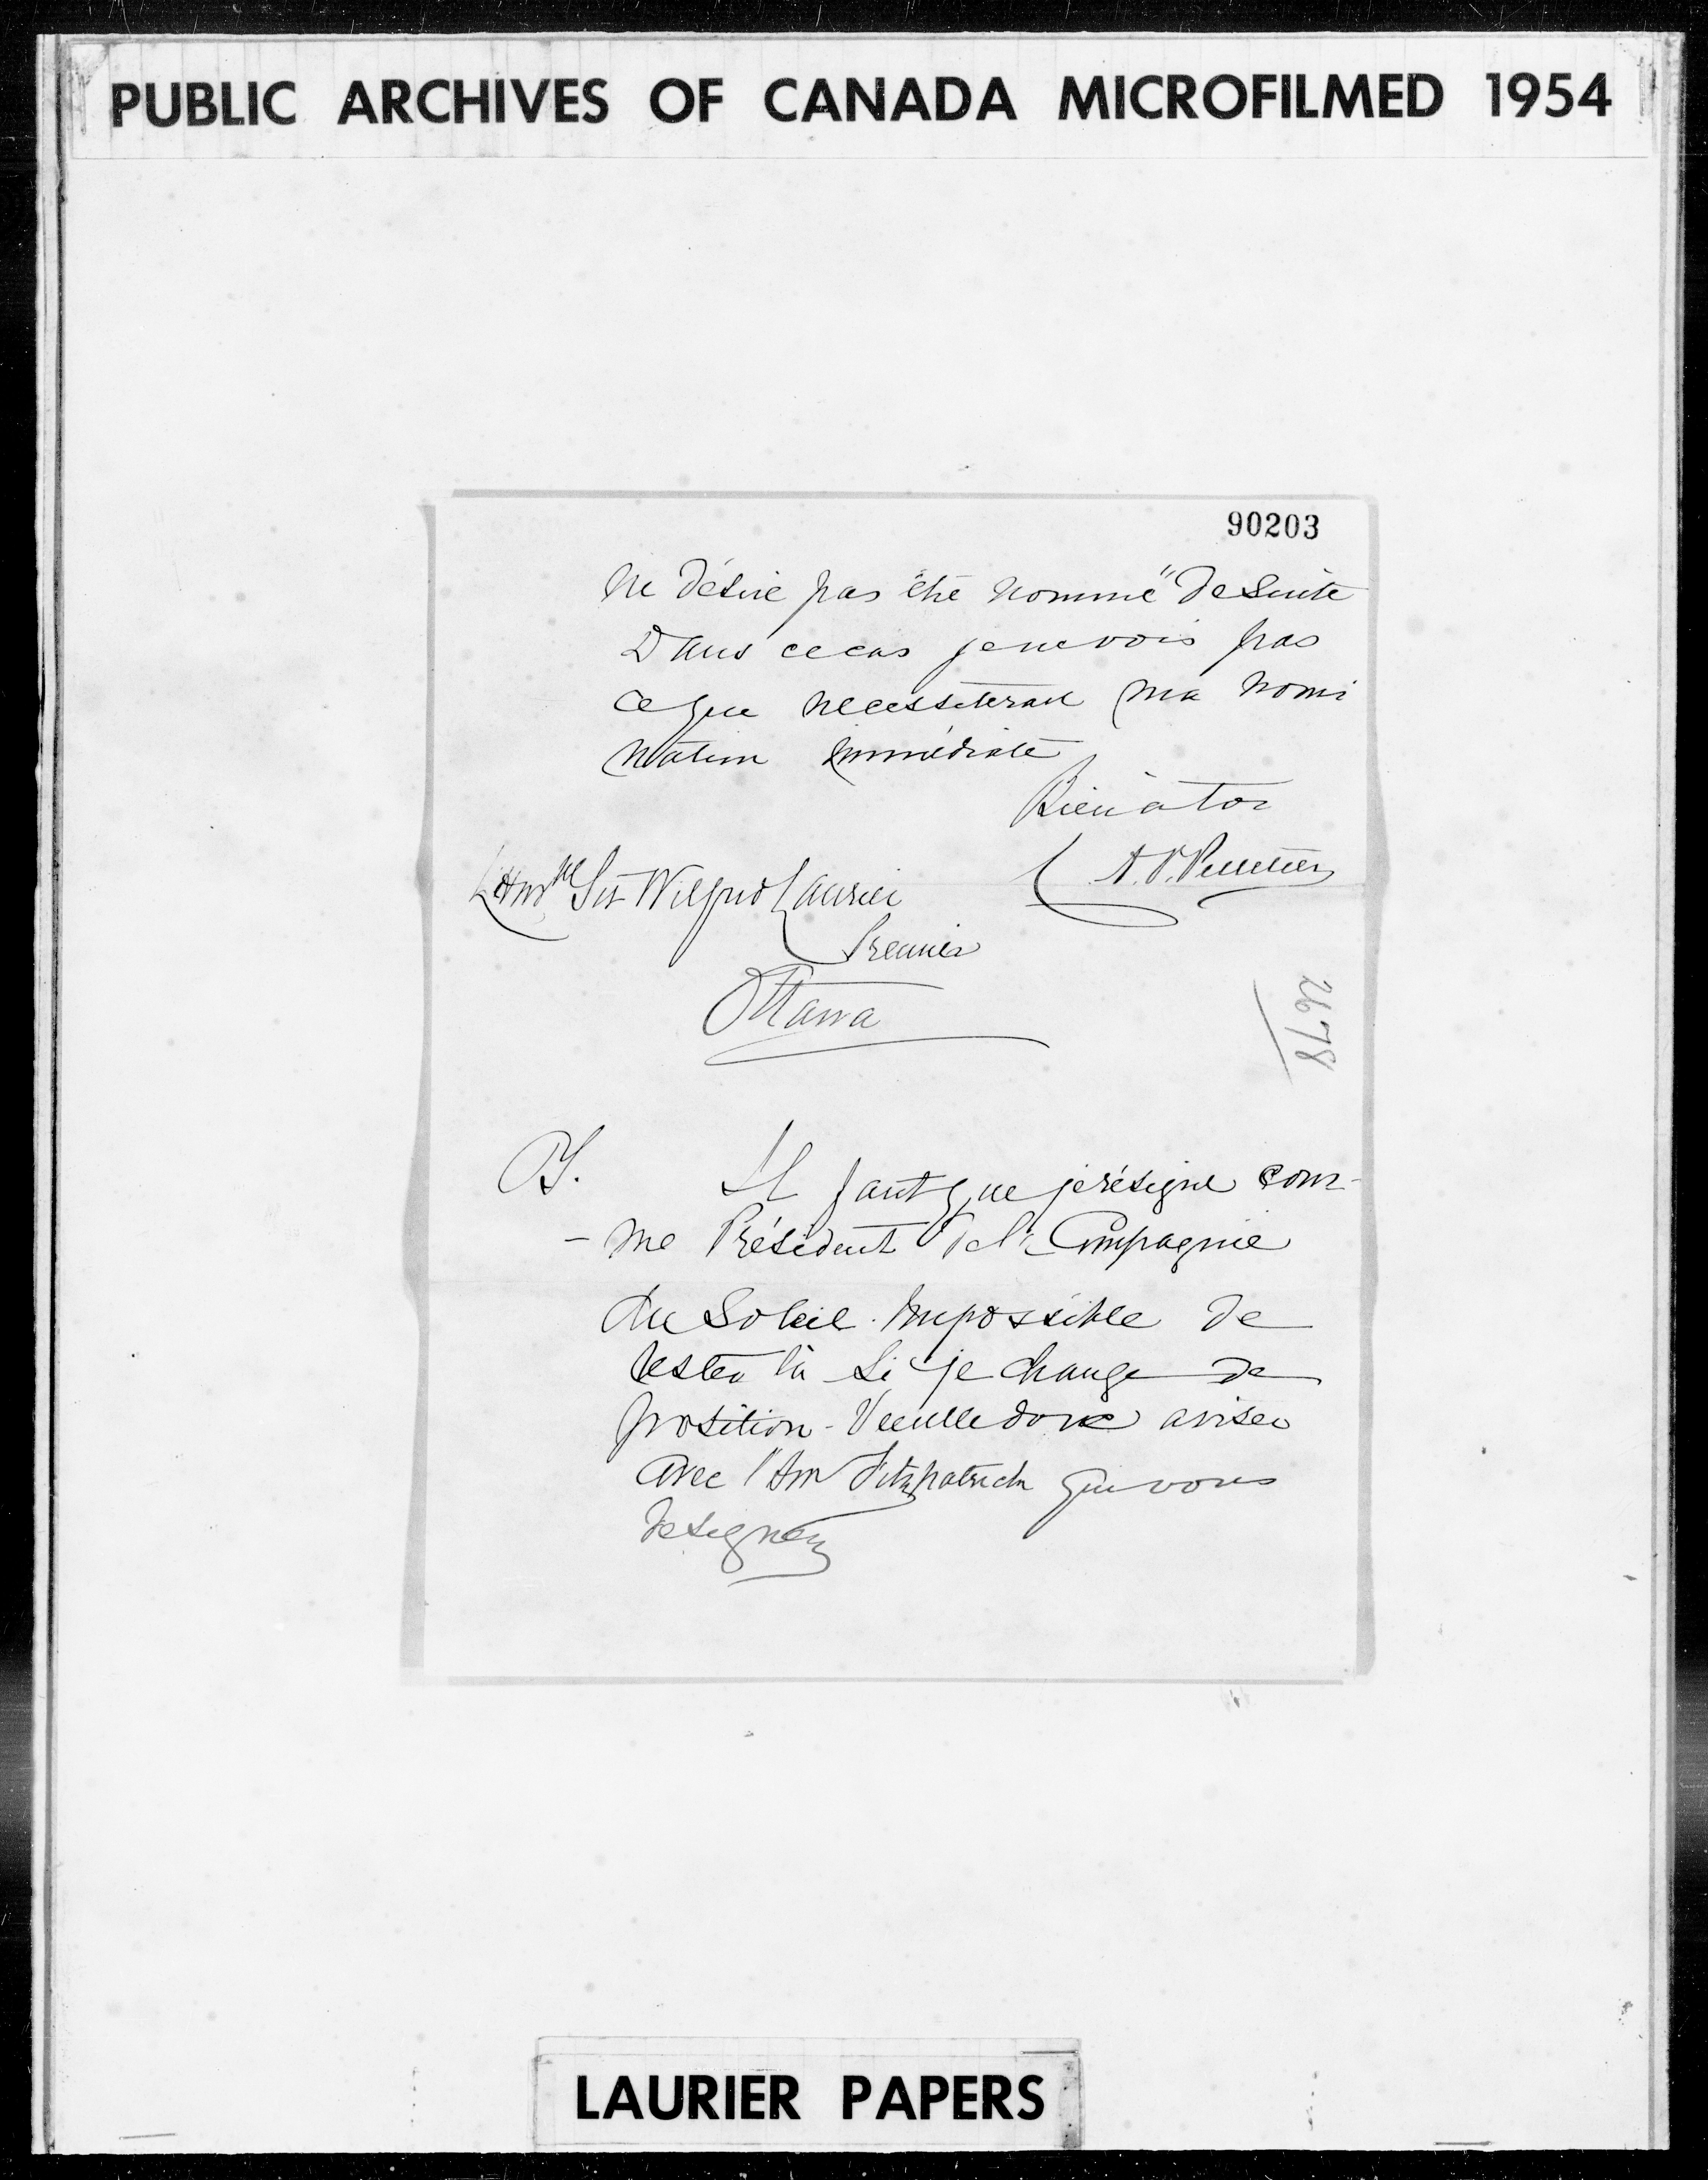 PUBLIC ARCHIVES OF CANADA MICROFILMED 1954
90203
ne désire pas être nommé de suite
Dans ce cas je ne vois pas
ce que necessiterait ma nomi
nation immédiate
Bien à toi
A. P. Pelletier
L'Honble Sir Wilfrid Laurier
Premier
Ottawa
2678
PS. Il faut que je résigne com-
-me Président de la Compagnie
du Soleil. Impossible de
rester là si je change de
position - Veuille donc aviser
avec l'Hon Fitzpatrick qui vous
designez
LAURIER PAPERS